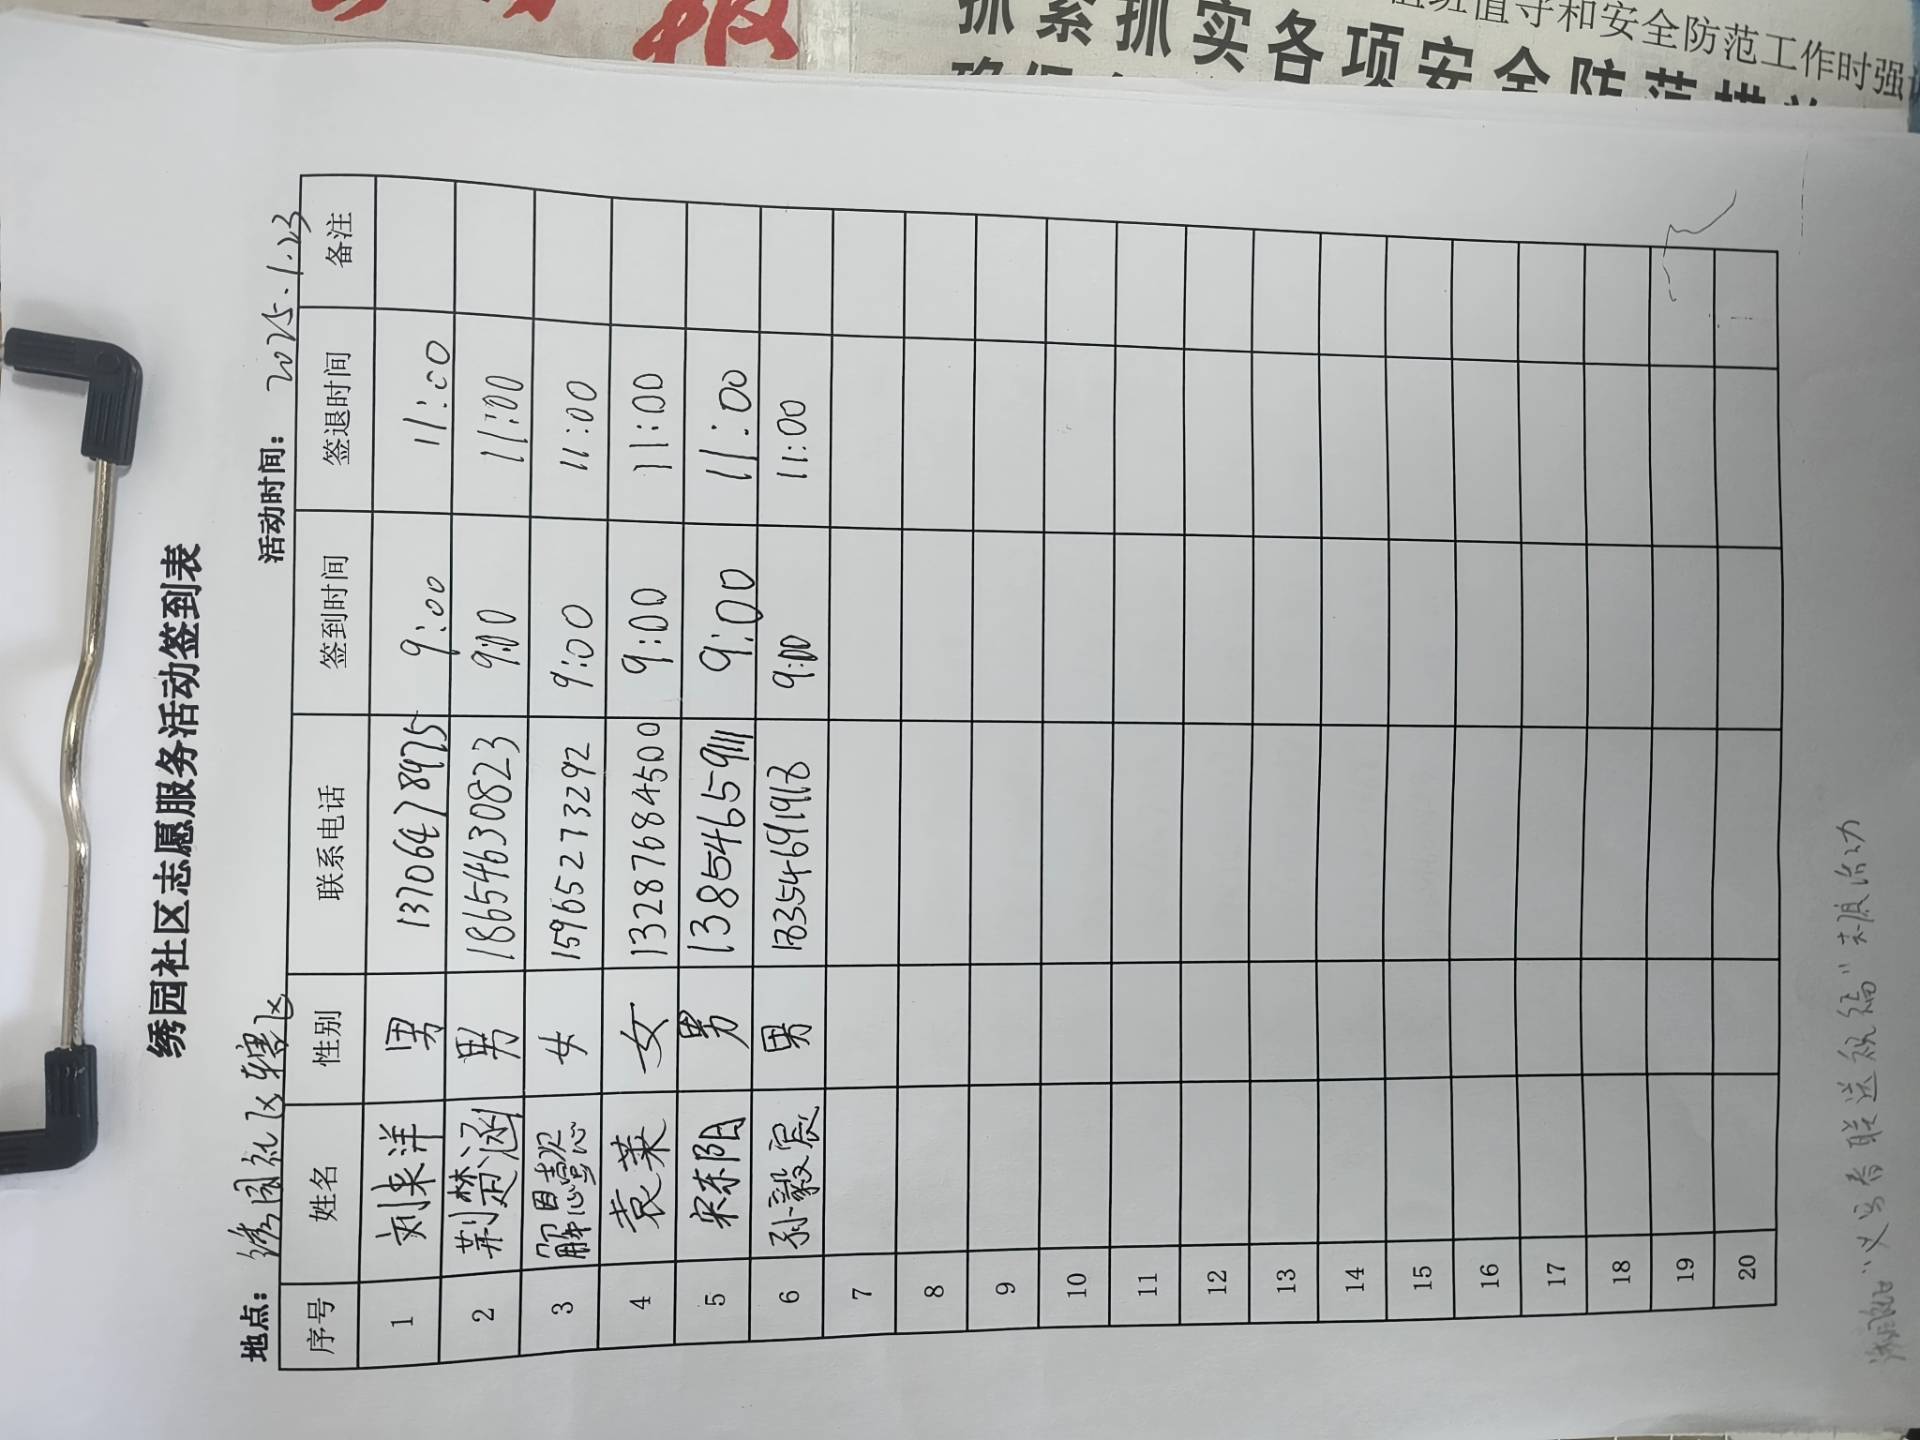 抓紧抓实各项安全防范措
值班值守和安全防范工作时强
报
绣园社区志愿服务活动签到表
地点: 绣园社区辖区 活动时间: 2025.1.23
序号 姓名 性别 联系电话 签到时间 签退时间 备注
1 刘来洋 男 13706478975 9:00 11:00
2 荆楚涵 男 18654630823 9:00 11:00
3 解思懿 女 15965273292 9:00 11:00
4 袁莱 女 13287684500 9:00 11:00
5 宋东阳 男 13854659111 9:00 11:00
6 孙毅宸 男 18354691918 9:00 11:00
7
8
9
10
11
12
13
14
15
16
17
18
19
20
"义写春联送祝福"志愿活动